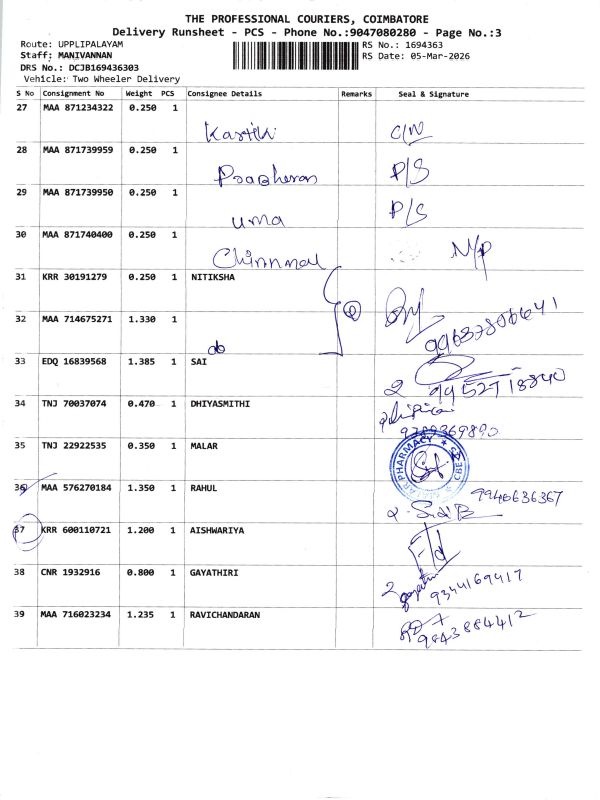 THE PROFESSIONAL COURIERS, COIMBATORE
Delivery Runsheet - PCS - Phone No.:9047080280 - Page No.:3
Route: UPPLIPALAYAM
RS No.: 1694363
Staff: MANIVANNAN
RS Date: 05-Mar-2026
DRS No.: DCJB169436303
Vehicle: Two Wheeler Delivery
S No Consignment No Weight PCS Consignee Details Remarks Seal & Signature
27 MAA 871234322 0.250 1
Karthi C/N
28 MAA 871739959 0.250 1
Prabheran P/S
29 MAA 871739950 0.250 1
uma P/S
30 MAA 871740400 0.250 1
Chinnmal N/P
31 KRR 30191279 0.250 1 NITIKSHA
32 MAA 714675271 1.330 1
99637806641
33 EDQ 16839568 1.385 1 SAI
2 9952718840
34 TNJ 70037074 0.470 1 DHIYASMITHI
9789369890
35 TNJ 22922535 0.350 1 MALAR
PHARMACY CBE
36 MAA 576270184 1.350 1 RAHUL
9940636367
37 KRR 600110721 1.200 1 AISHWARIYA
38 CNR 1932916 0.800 1 GAYATHIRI
2 gayathri 9344169417
39 MAA 716023234 1.235 1 RAVICHANDARAN
9843884412